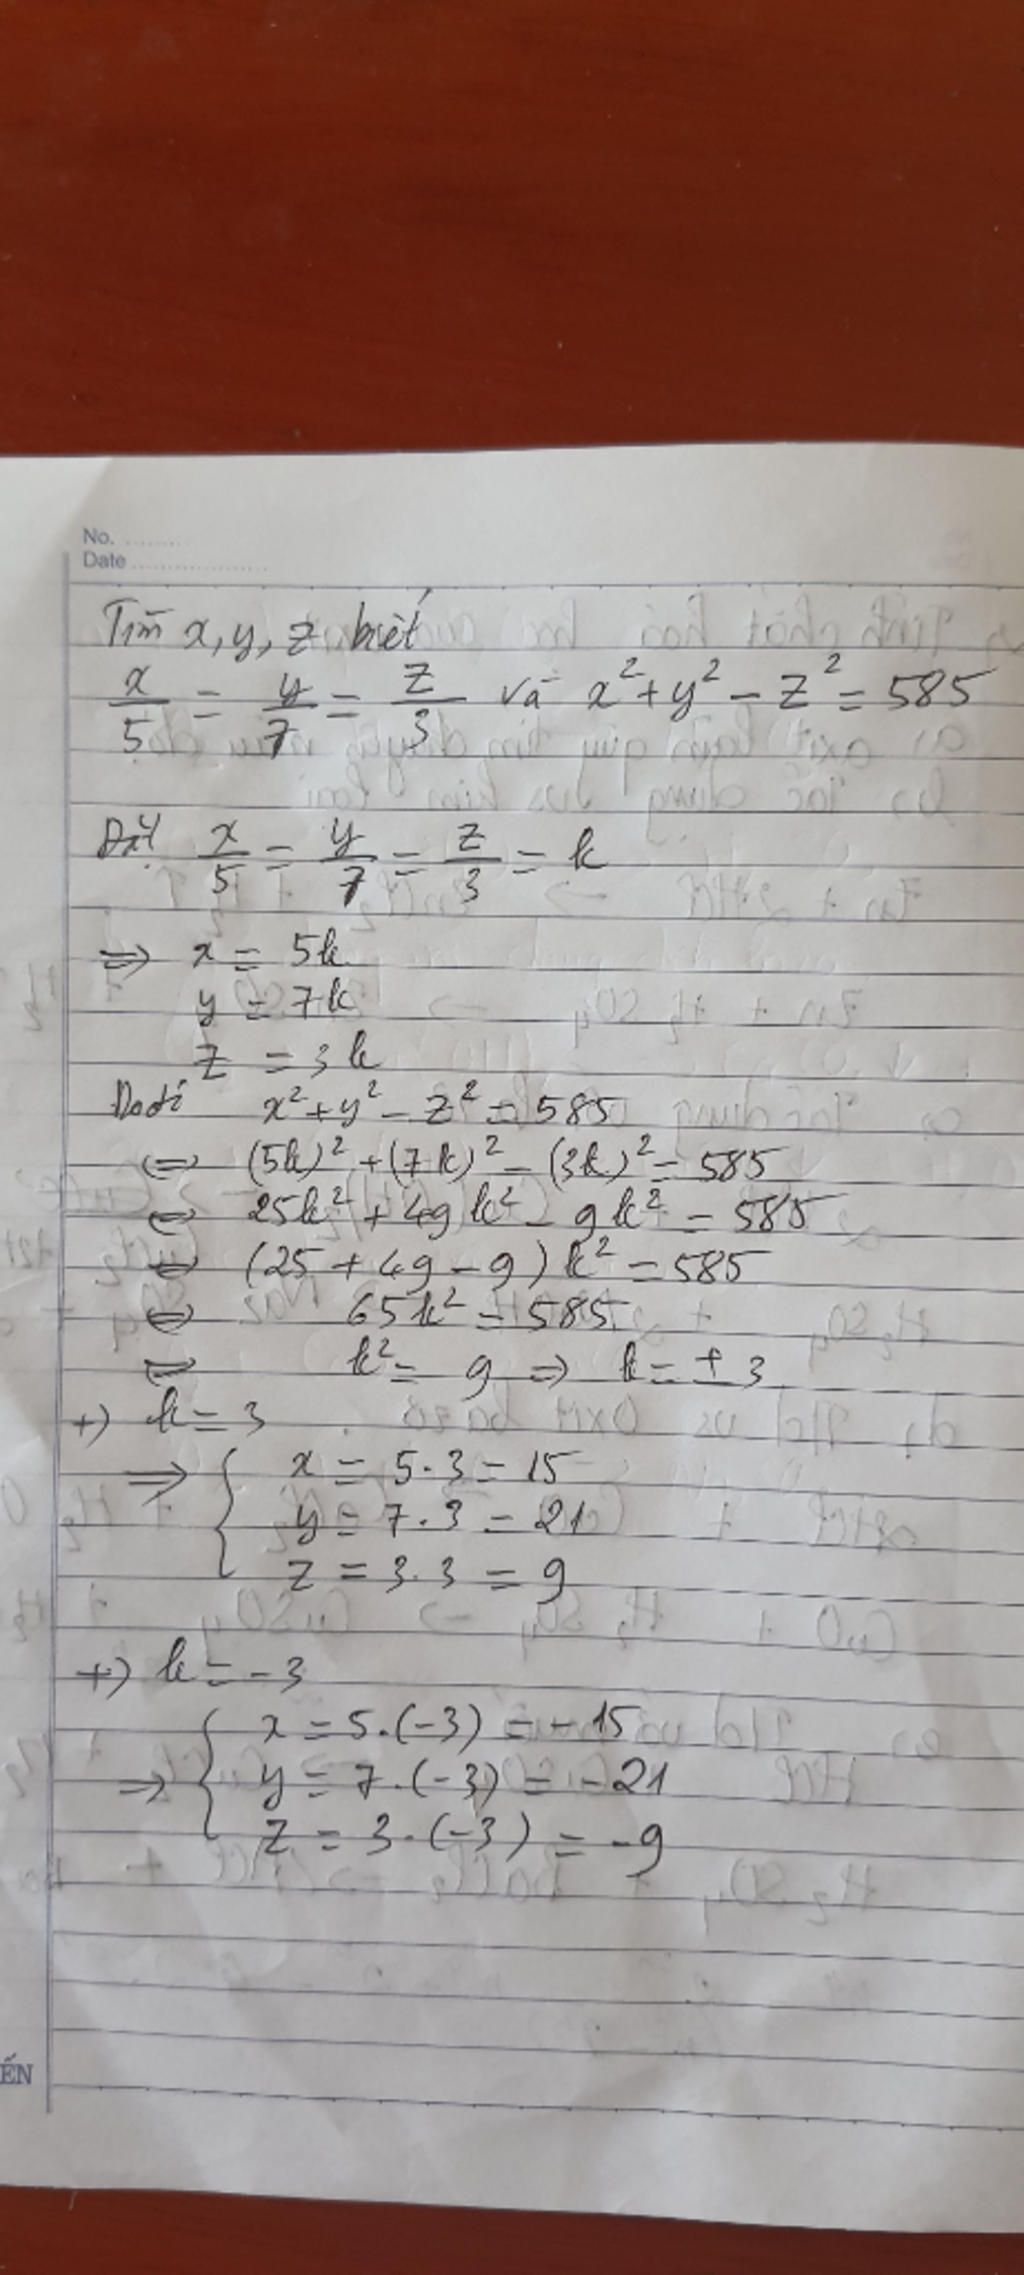 No. ........
Date ..................
Tìm x, y, z biết
x/5 = y/7 = z/3 và x² + y² - z² = 585
Đặt x/5 = y/7 = z/3 = k
=> x = 5k
y = 7k
z = 3k
Do đó x² + y² - z² = 585
<=> (5k)² + (7k)² - (3k)² = 585
<=> 25k² + 49k² - 9k² = 585
<=> (25 + 49 - 9)k² = 585
<=> 65k² = 585
<=> k² = 9 => k = ± 3
+) k = 3
=> { x = 5.3 = 15
y = 7.3 = 21
z = 3.3 = 9
+) k = -3
{ x = 5.(-3) = -15
=> y = 7.(-3) = -21
z = 3.(-3) = -9
ẾN